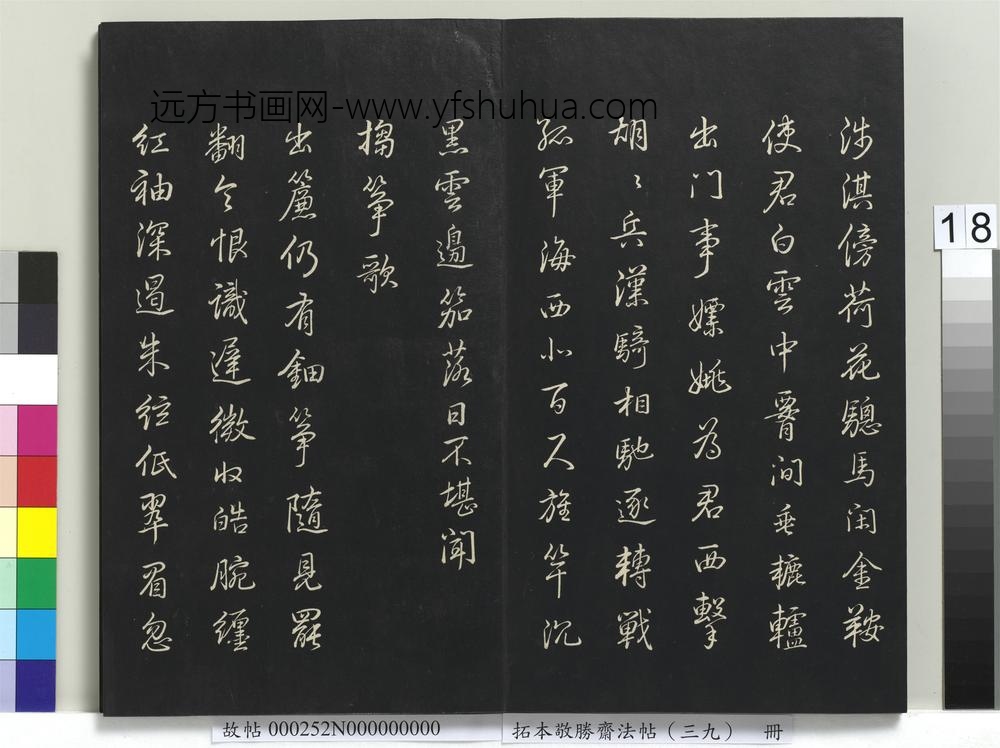 涉淇傍荷花驄馬闲金鞍
使君白雲中腰間垂轆轤
出门事嫖姚為君西擊
胡〻兵漢騎相馳逐轉戰
孤軍海西北百尺旌竿沉
黑雲邊笳落日不堪聞
搊筝歌
出簾仍有鈿筝隨見罷
翻令恨識遲微收皓腕纏
紅袖深遏朱絃低翠眉忽
远方书画网-www.yfshuhua.com
18
故帖 000252N000000000
拓本敬勝齋法帖（三九） 冊